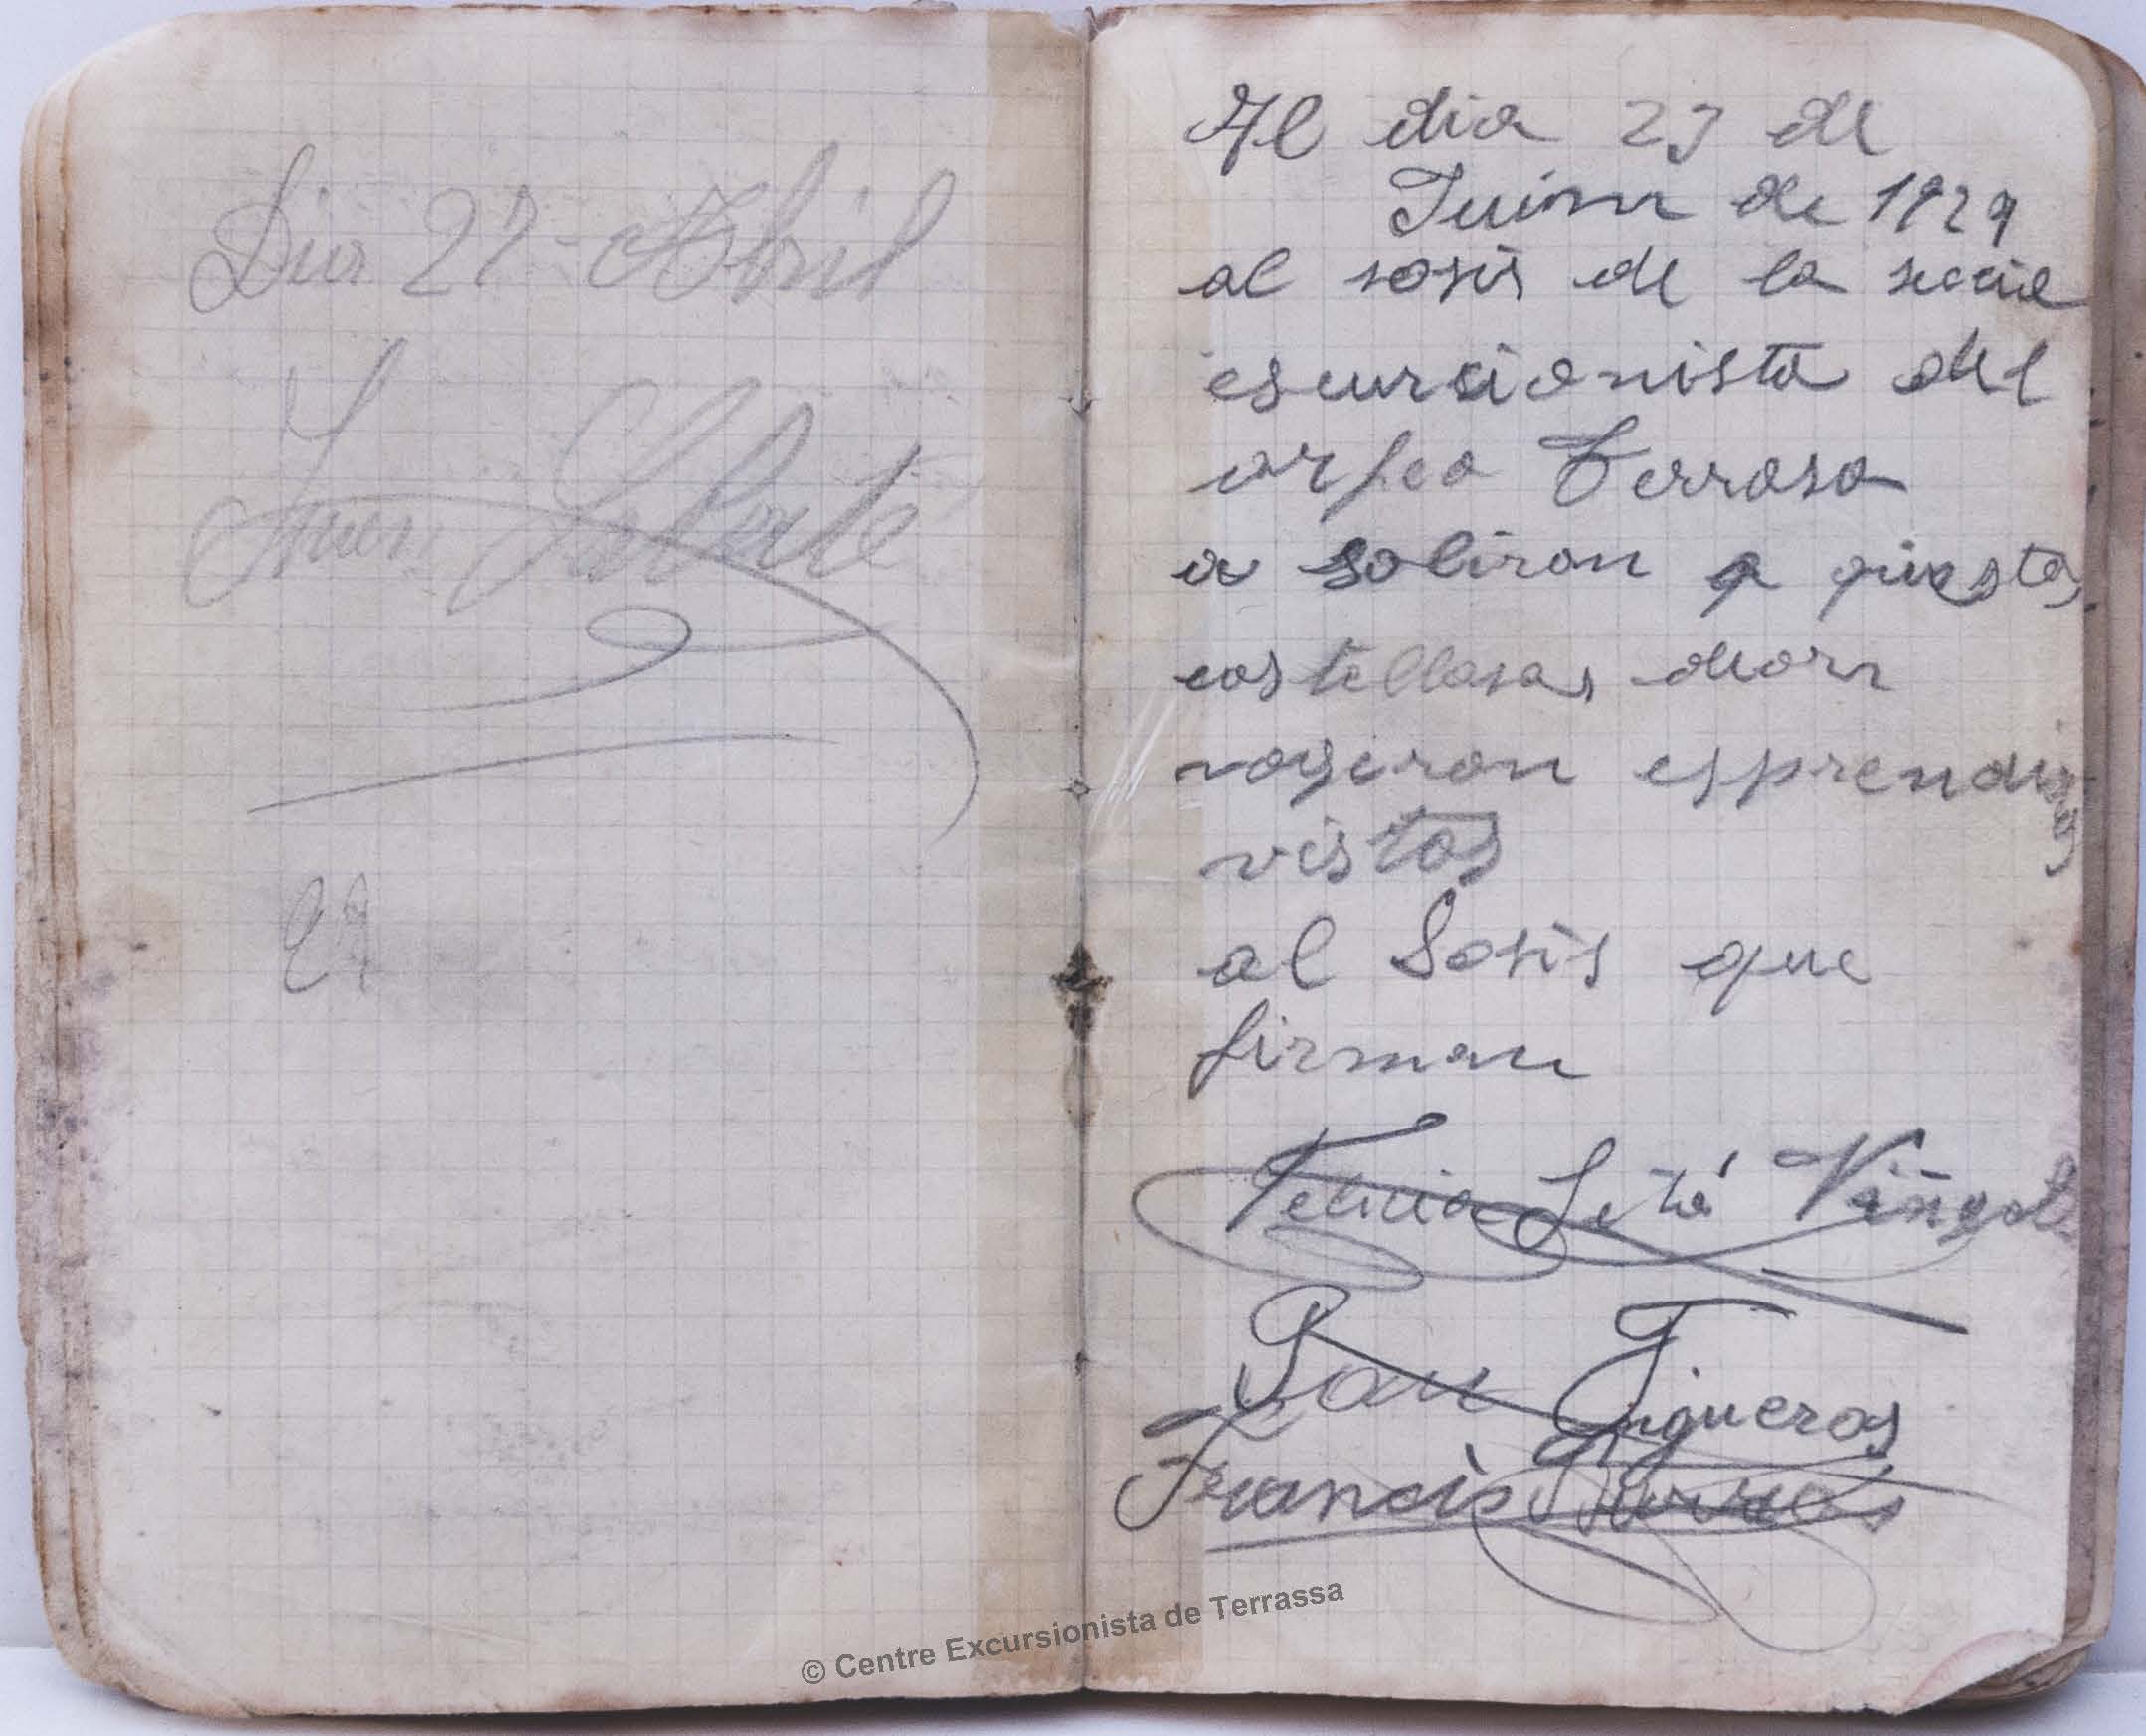 Dia 27 Abril
Juan Sabaté
Al dia 23 de
Juinu de 1929
al sosis de la secció
escursionista del
orfeo Terrasa
a saliron a questas
costellasas deorn
vayeron esprendi
vistas
al Sosis que
firman
Felicia Setó Viñals
Pau Figueros
Francis
© Centre Excursionista de Terrassa